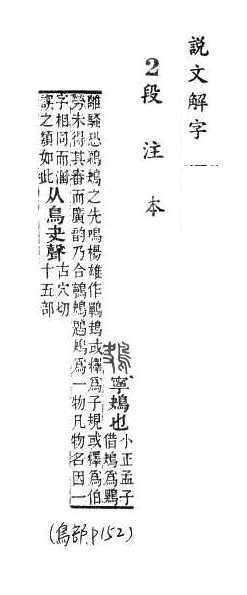 說文解字
2段注本
寧鴂也
小正孟子
借鴂爲鶪
離騷恐鵜鴂之先鳴楊雄作鷤䳏或釋爲子規或釋爲伯
勞未得其審而廣韵乃合鷤鴂鶗鴂爲一物凡物名因一
字相同而溷
誤之類如此
从鳥夬聲
古穴切
十五部
(鳥部,P152)